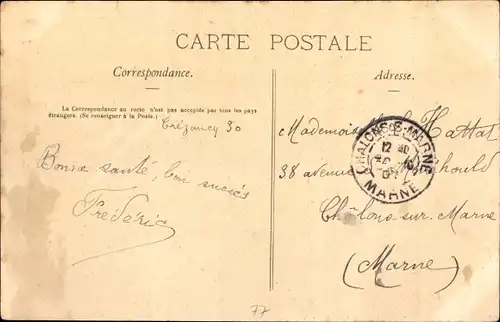 CARTE POSTALE
Correspondance.
Adresse.
La Correspondance au recto n'est pas acceptée par tous les pays
étrangers. (Se renseigner à la Poste.)
Trézancy 30
Bonne santé, bon succès
Frédéric
Mademoiselle Hattat
38 avenue
Châlons-sur-Marne
(Marne)
CHALONS-S-MARNE
MARNE
77